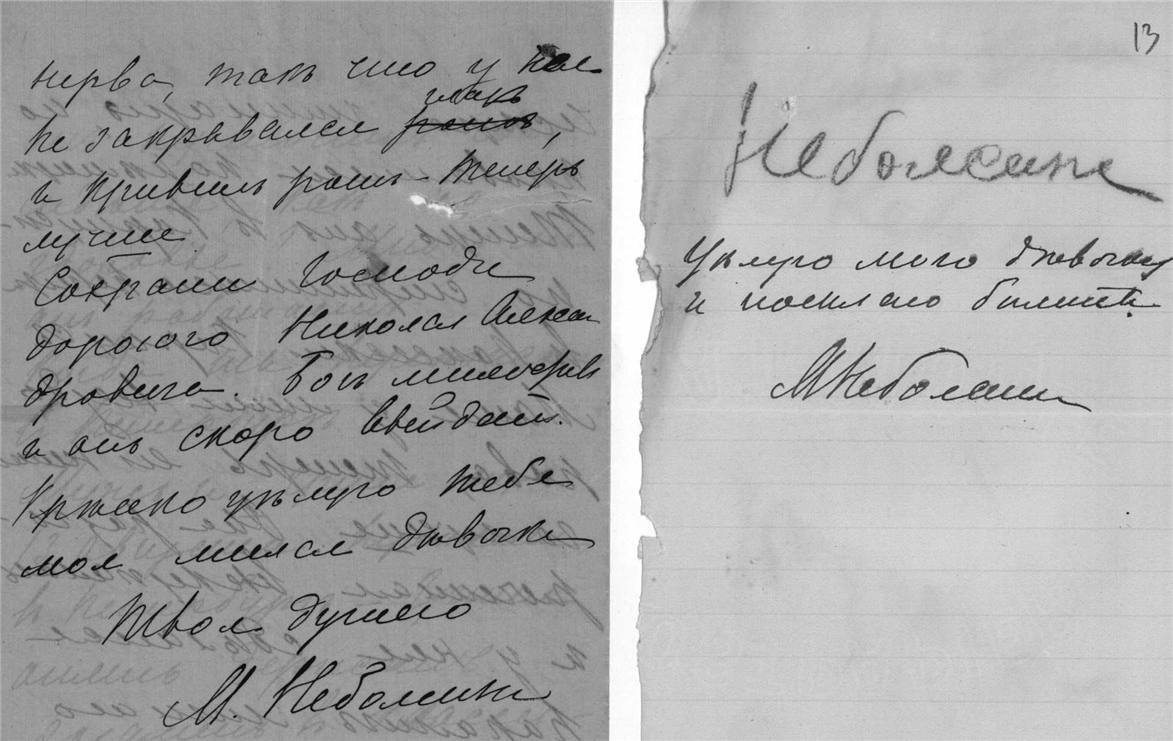 нерва, такъ что у нея
глазъ
не закрывался ротъ,
и кривилъ ротъ – теперь
лучше.
Сохрани Господи
дорогого Николая Алекса
дровича. Богъ милосердъ
и онъ скоро выйдетъ.
Крѣпко цѣлую тебя
моя милая дѣвочка
Твоя душою
М. Неболсина
13
Неболсина
Цѣлую мою дѣвочку
и посылаю билетъ.
М Неболсина